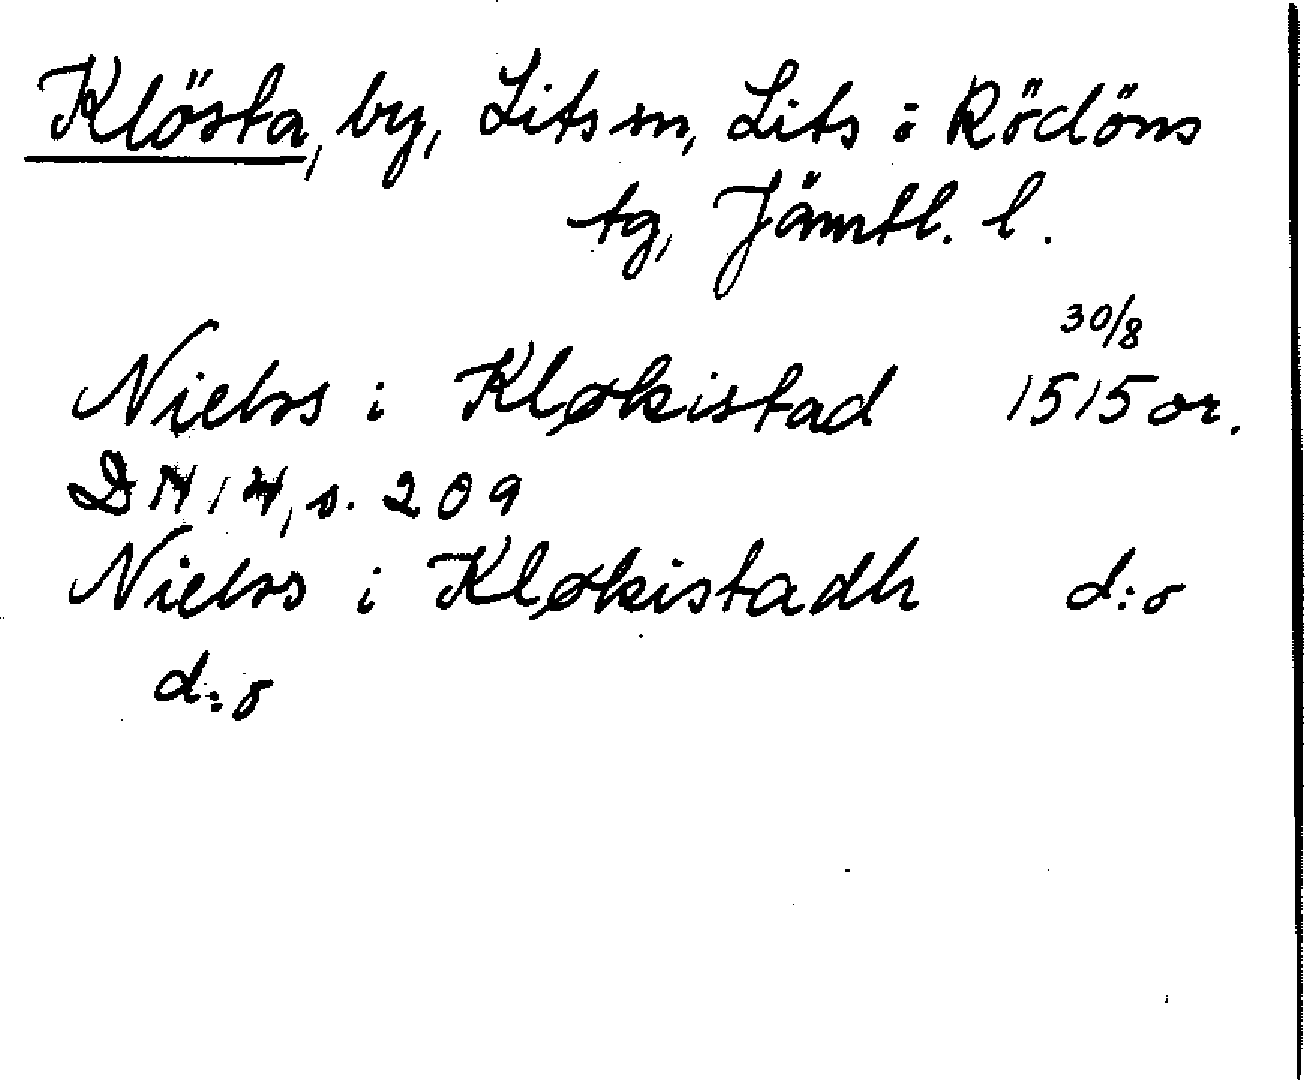 Klösta, by, Lits sn, Lits o Rödöns
tg, Jämtl. l.
30/8
Nielss i Kløkistad 1515 or.
DN 14, s. 209
Nielss i Kløkistadh d:o
d:o